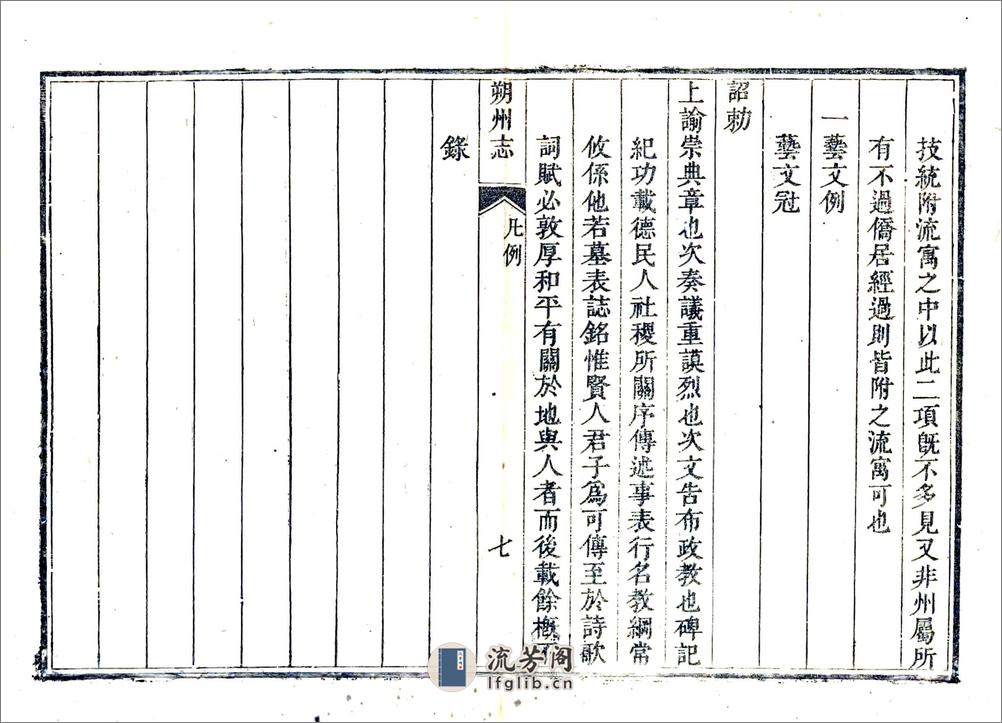 技統附流寓之中以此二項旣不多見又非州屬所
有不過僑居經過則皆附之流寓可也
一藝文例
藝文冠
詔勅
上諭崇典章也次奏議重謨烈也次文告布政教也碑記
紀功載德民人社稷所關序傳述事表行名教綱常
攸係他若墓表誌銘惟賢人君子爲可傳至於詩歌
詞賦必敦厚和平有關於地與人者而後載餘槪不
朔州志
凡例
七
錄
流芳阁
lfglib.cn